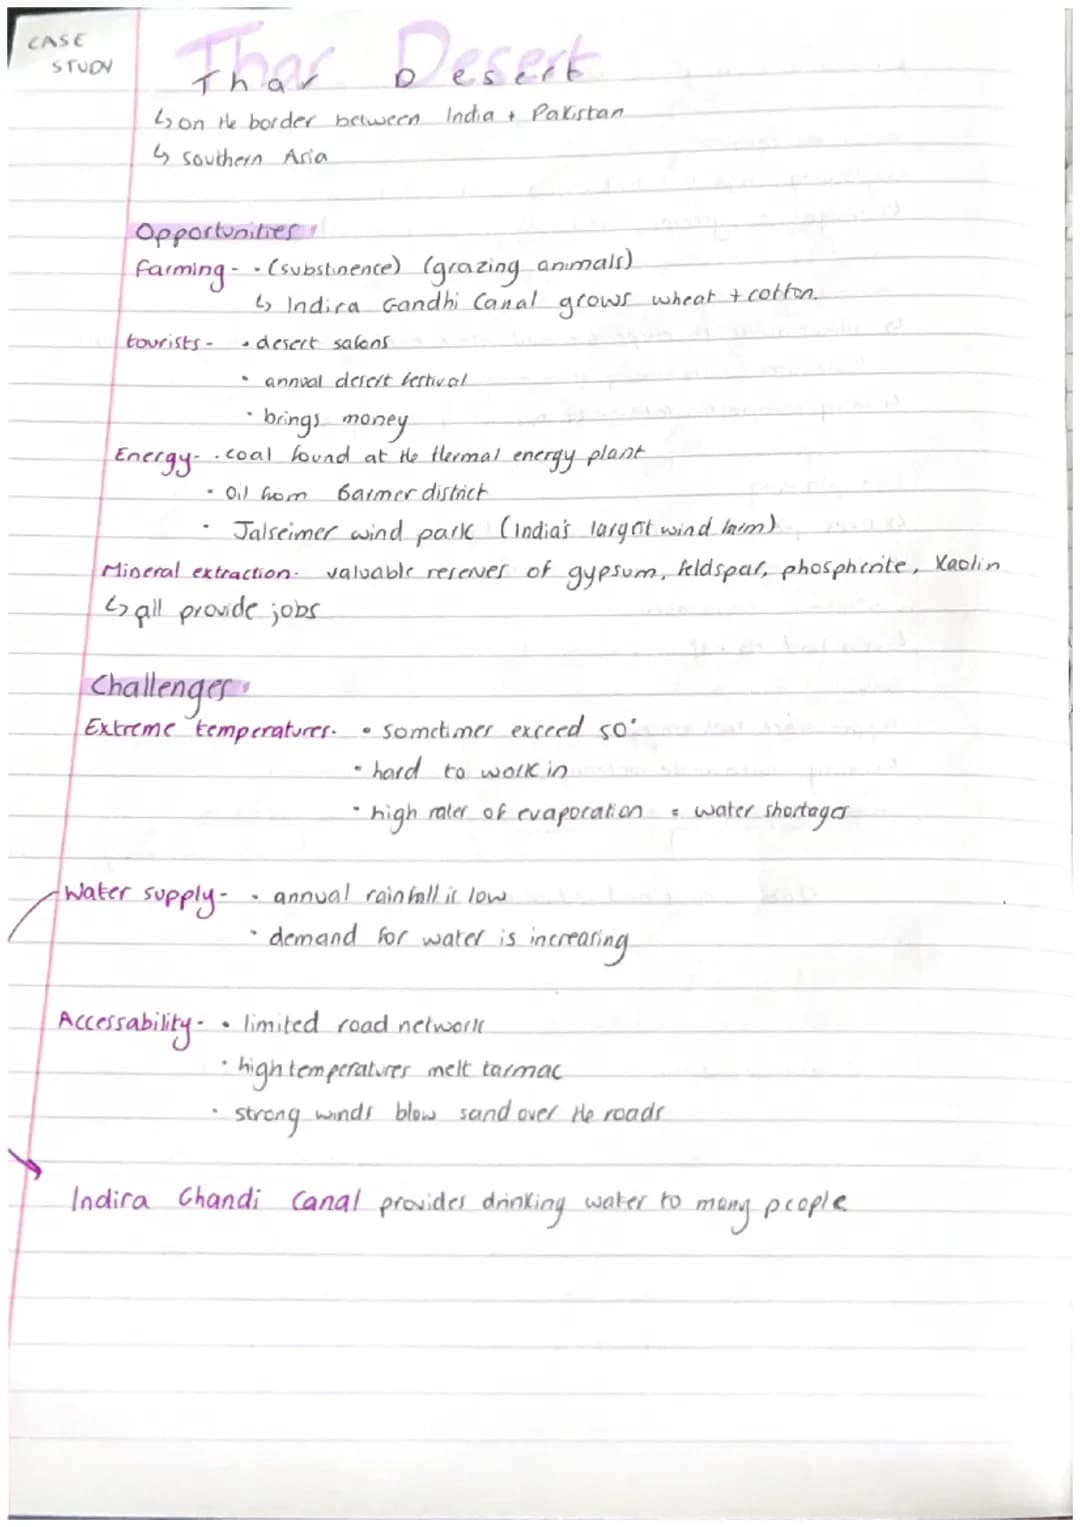 CASE
STUDY
Thar Desert
Thar Desert
↳ on the border between India + Pakistan
↳ southern Asia
Opportunities
farming - • (substinence) (grazing animals)
↳ Indira Gandhi Canal grows wheat + cotton.
tourists - • desert safaris
• annual desert festival
• brings money
Energy - • coal found at the thermal energy plant
• oil from Barmer district
• Jalseimer wind park (India's largest wind farm)
Mineral extraction - valuable reserves of gypsum, feldspar, phospherite, Kaolin
↳ all provide jobs
Challenges
Extreme temperatures. • sometimes exceed 50°
• hard to work in
• high rates of evaporation = water shortages
Water supply - • annual rainfall is low
• demand for water is increasing
Accessability - • limited road network
• high temperatures melt tarmac
• strong winds blow sand over the roads
Indira Ghandi Canal provides drinking water to many people